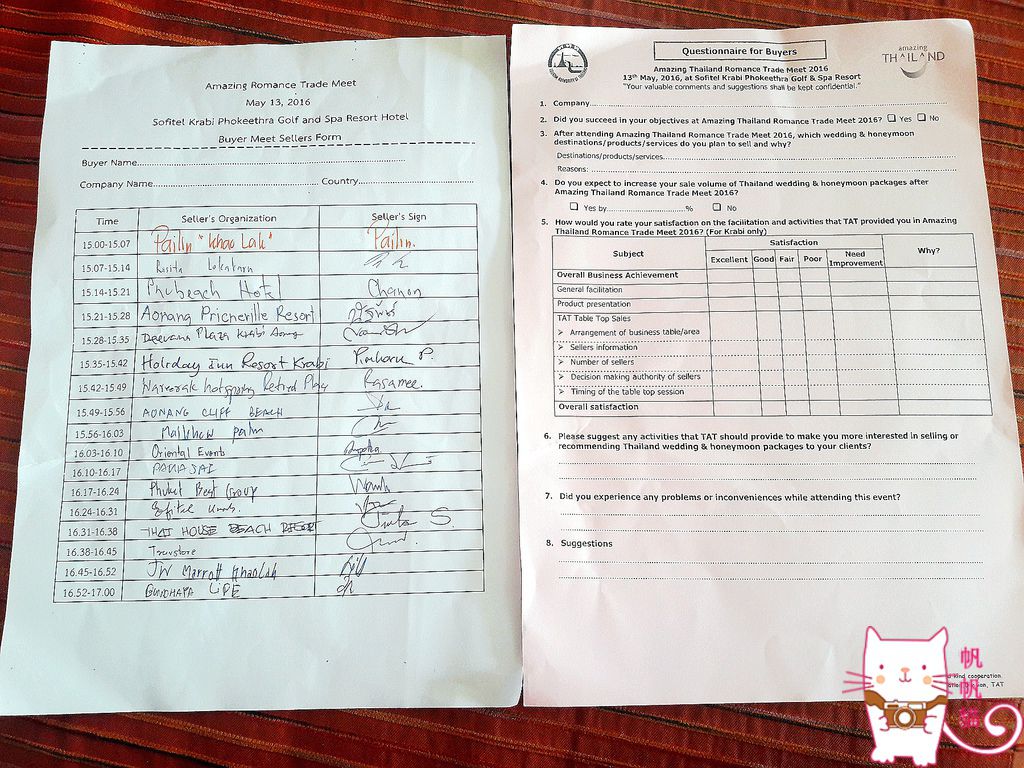 Amazing Romance Trade Meet
May 13, 2016
Sofitel Krabi Phokeethra Golf and Spa Resort Hotel
Buyer Meet Sellers Form
Buyer Name
Company Name Country
Time Seller's Organization Seller's Sign
15.00-15.07 Pailin "Khao Lak" Pailin.
15.07-15.14
15.14-15.21 Phubeach Hotel Chanon
15.21-15.28 Aonang Princeville Resort
15.28-15.35 Deevana Plaza Krabi Aonang
15.35-15.42 Holiday Inn Resort Krabi
15.42-15.49 Rasamee.
15.49-15.56 AONANG CLIFF BEACH
15.56-16.03 Palm
16.03-16.10 Oriental Events
16.10-16.17 PAKASAI
16.17-16.24 Phuket Best Group
16.24-16.31 Sofitel
16.31-16.38 THAI HOUSE BEACH RESORT
16.38-16.45
16.45-16.52 JW Marriott Khaolak
16.52-17.00 BUNDHAYA LIPE
Questionnaire for Buyers
amazing
THAILAND
Amazing Thailand Romance Trade Meet 2016
13th May, 2016, at Sofitel Krabi Phokeethra Golf & Spa Resort
"Your valuable comments and suggestions shall be kept confidential."
1. Company
2. Did you succeed in your objectives at Amazing Thailand Romance Trade Meet 2016? ☐ Yes ☐ No
3. After attending Amazing Thailand Romance Trade Meet 2016, which wedding & honeymoon
destinations/products/services do you plan to sell and why?
Destinations/products/services
Reasons:
4. Do you expect to increase your sale volume of Thailand wedding & honeymoon packages after
Amazing Thailand Romance Trade Meet 2016?
☐ Yes by % ☐ No
5. How would you rate your satisfaction on the facilitation and activities that TAT provided you in Amazing
Thailand Romance Trade Meet 2016? (For Krabi only)
Subject Satisfaction Why?
Excellent Good Fair Poor Need Improvement
Overall Business Achievement
General facilitation
Product presentation
TAT Table Top Sales
➢ Arrangement of business table/area
➢ Sellers information
➢ Number of sellers
➢ Decision making authority of sellers
➢ Timing of the table top session
Overall satisfaction
6. Please suggest any activities that TAT should provide to make you more interested in selling or
recommending Thailand wedding & honeymoon packages to your clients?
7. Did you experience any problems or inconveniences while attending this event?
8. Suggestions
kind cooperation.
TAT
帆帆貓